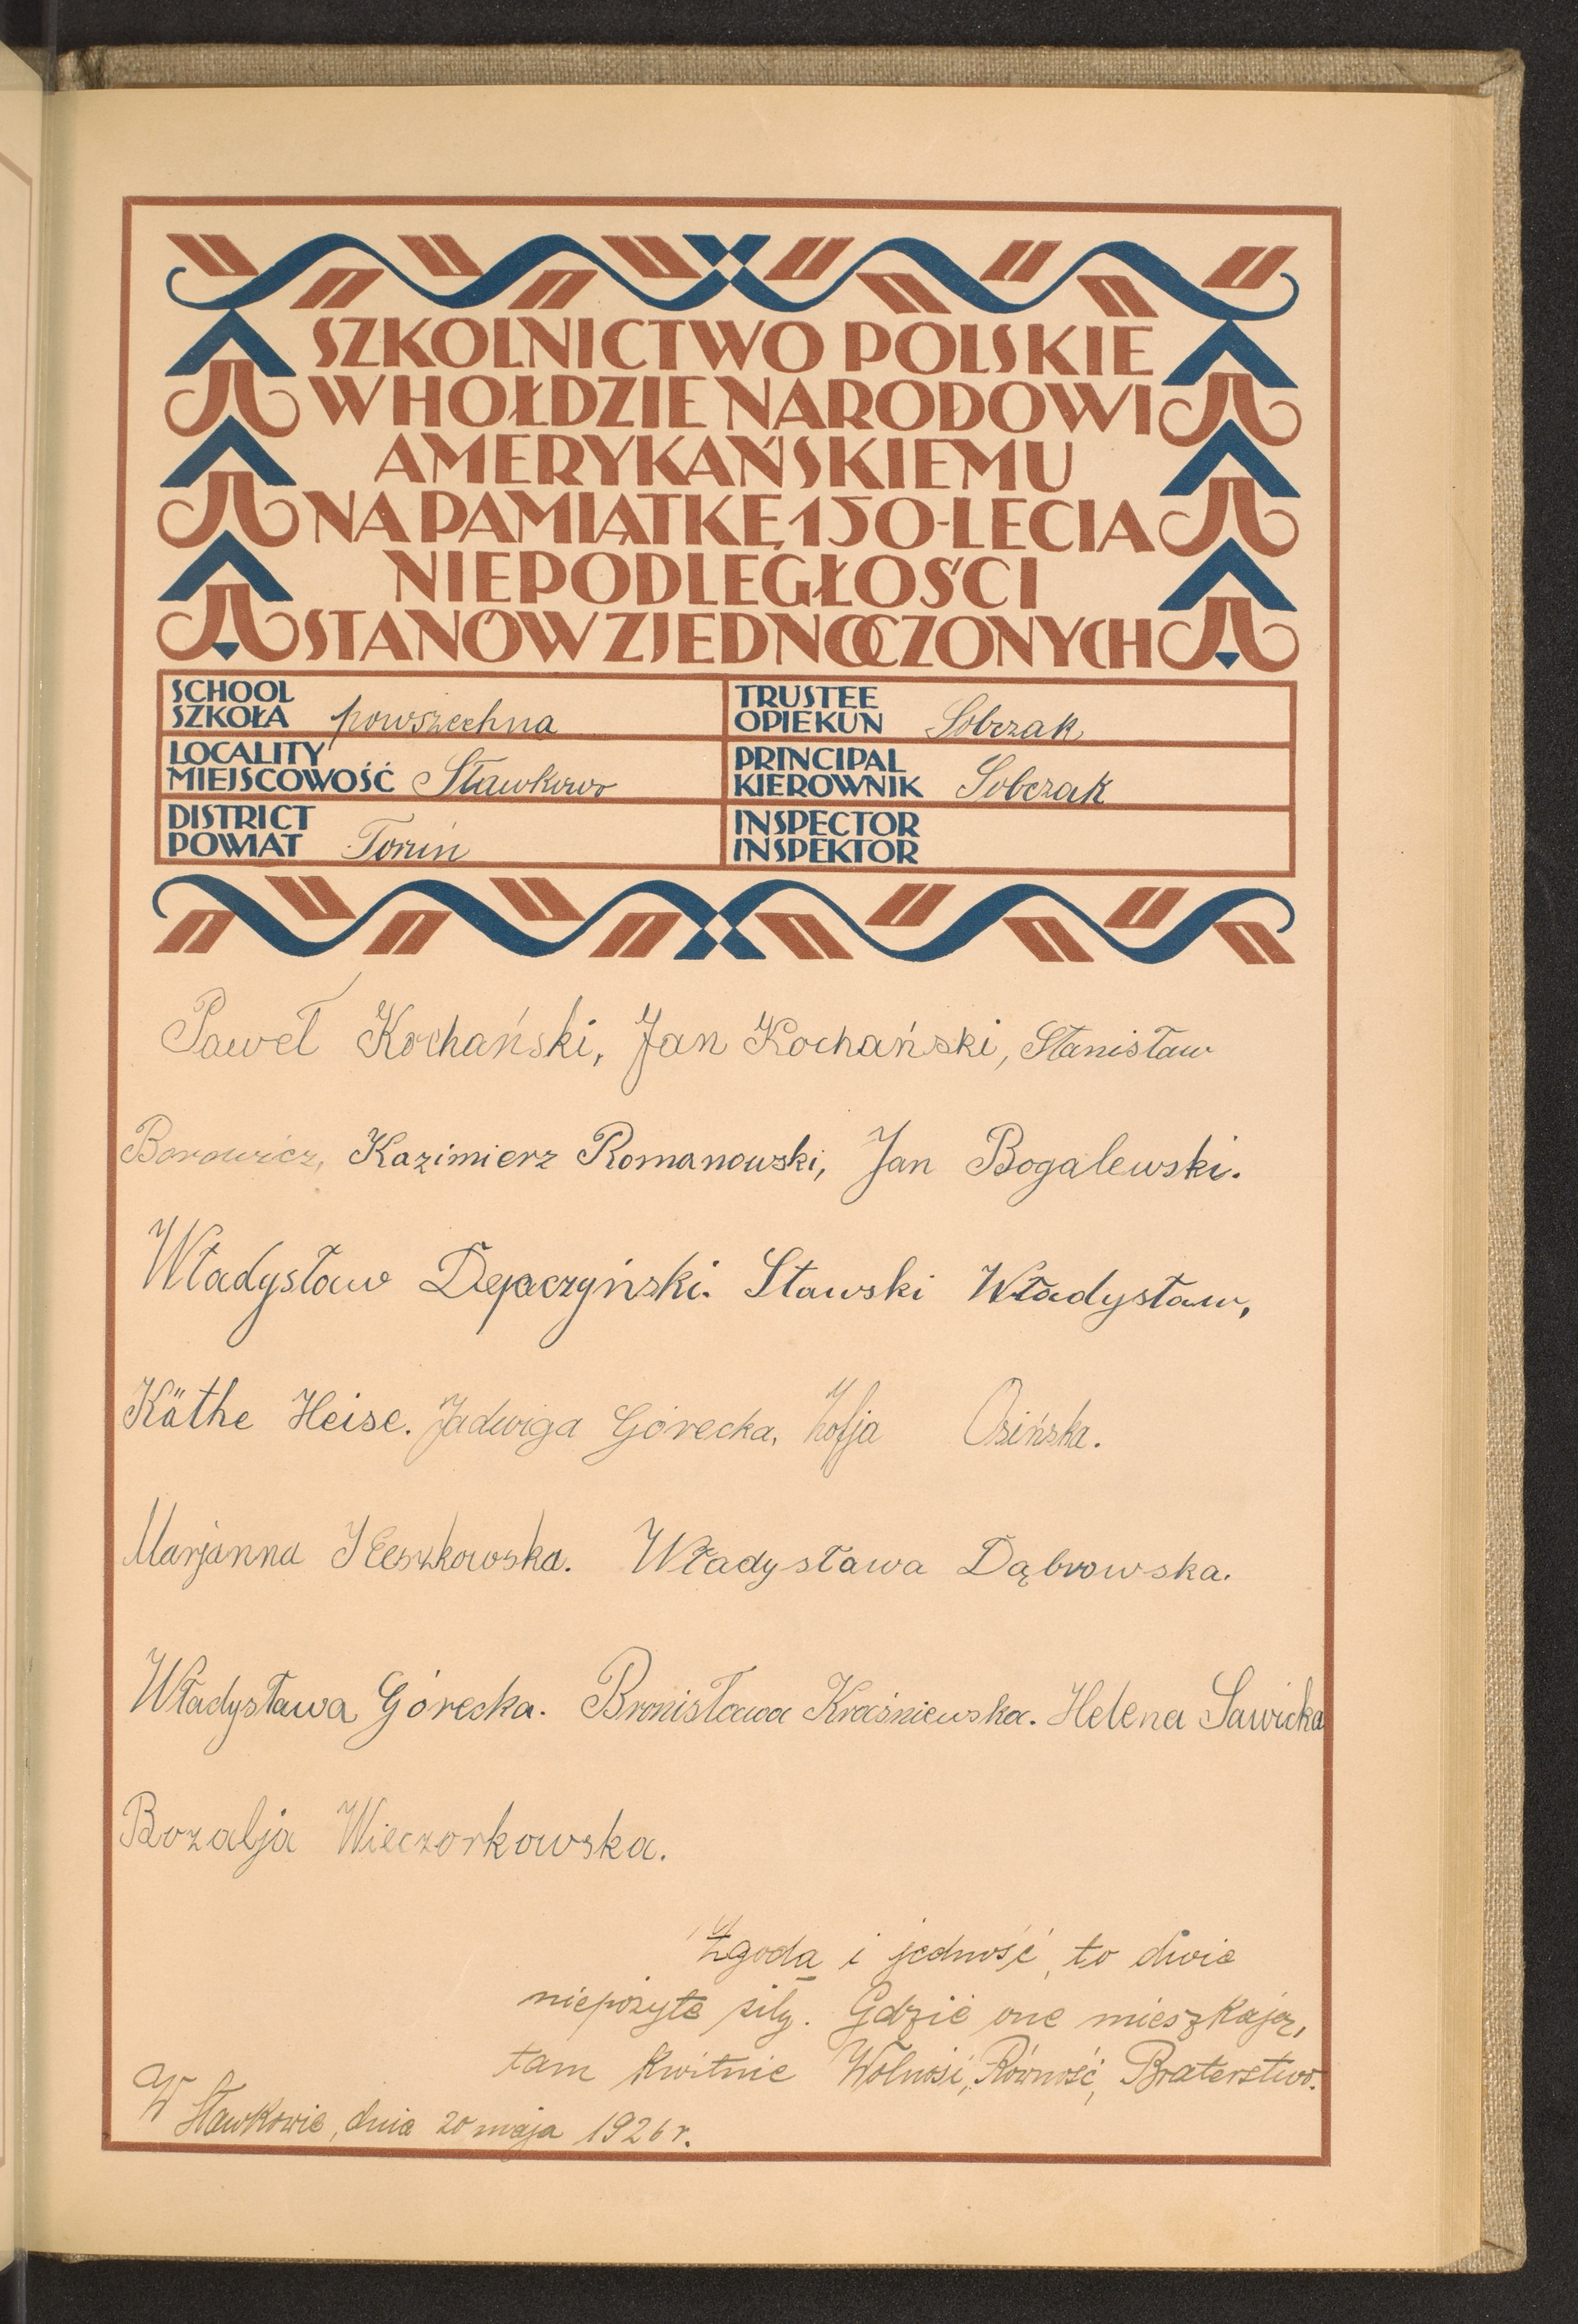 SZKOLNICTWO POLSKIE
W HOŁDZIE NARODOWI
AMERYKAŃSKIEMU
NA PAMIĄTKĘ 150-LECIA
NIEPODLEGŁOŚCI
STANÓW ZJEDNOCZONYCH
SCHOOL
SZKOŁA powszechna
TRUSTEE
OPIEKUN Sobczak
LOCALITY
MIEJSCOWOŚĆ Sławkowo
PRINCIPAL
KIEROWNIK Sobczak
DISTRICT
POWIAT Toruń
INSPECTOR
INSPEKTOR
Paweł Kochański, Jan Kochański, Stanisław
Borowicz, Kazimierz Romanowski, Jan Bogalewski.
Władysław Stawski Władysław,
Käthe Heise. Jadwiga Górecka, Zofja Osińska.
Marjanna Władysława Dąbrowska.
Władysława Górecka. Bronisława Kraśniewska. Helena Sawicka
Rozalja Wieczorkowska.
Zgoda i jedność, to dwie
niepożyte siły. Gdzie one mieszkają,
tam kwitnie Wolność, Równość, Braterstwo.
W Sławkowie, dnia 20 maja 1926 r.